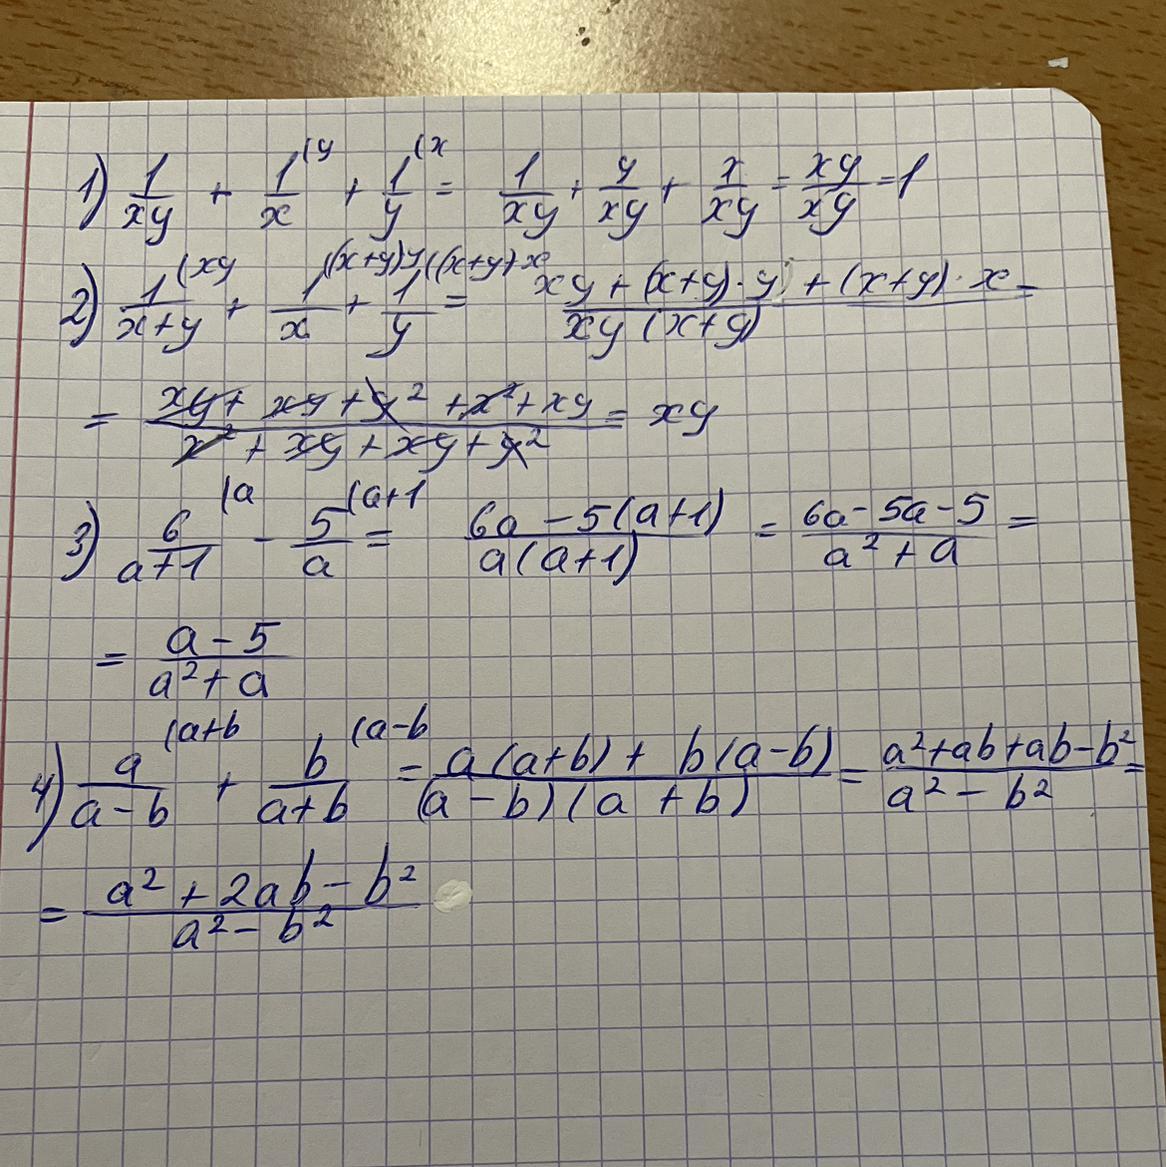 1) 1/xy + 1/x (y + 1/y (x = 1/xy + y/xy + x/xy = xy/xy = 1
2) 1/(x+y) (xy + 1/x ((x+y)y + 1/y ((x+y)·x = (xy + (x+y)·y + (x+y)·x)/(xy(x+y)) =
= (xy + xy + y² + x² + xy)/(x² + xy + xy + y²) = xy
3) 6/(a+1) (a - 5/a (a+1 = (6a - 5(a+1))/(a(a+1)) = (6a - 5a - 5)/(a² + a) =
= (a - 5)/(a² + a)
4) a/(a-b) (a+b + b/(a+b) (a-b = (a(a+b) + b(a-b))/((a-b)(a+b)) = (a²+ab+ab-b²)/(a² - b²) =
= (a² + 2ab - b²)/(a² - b²)